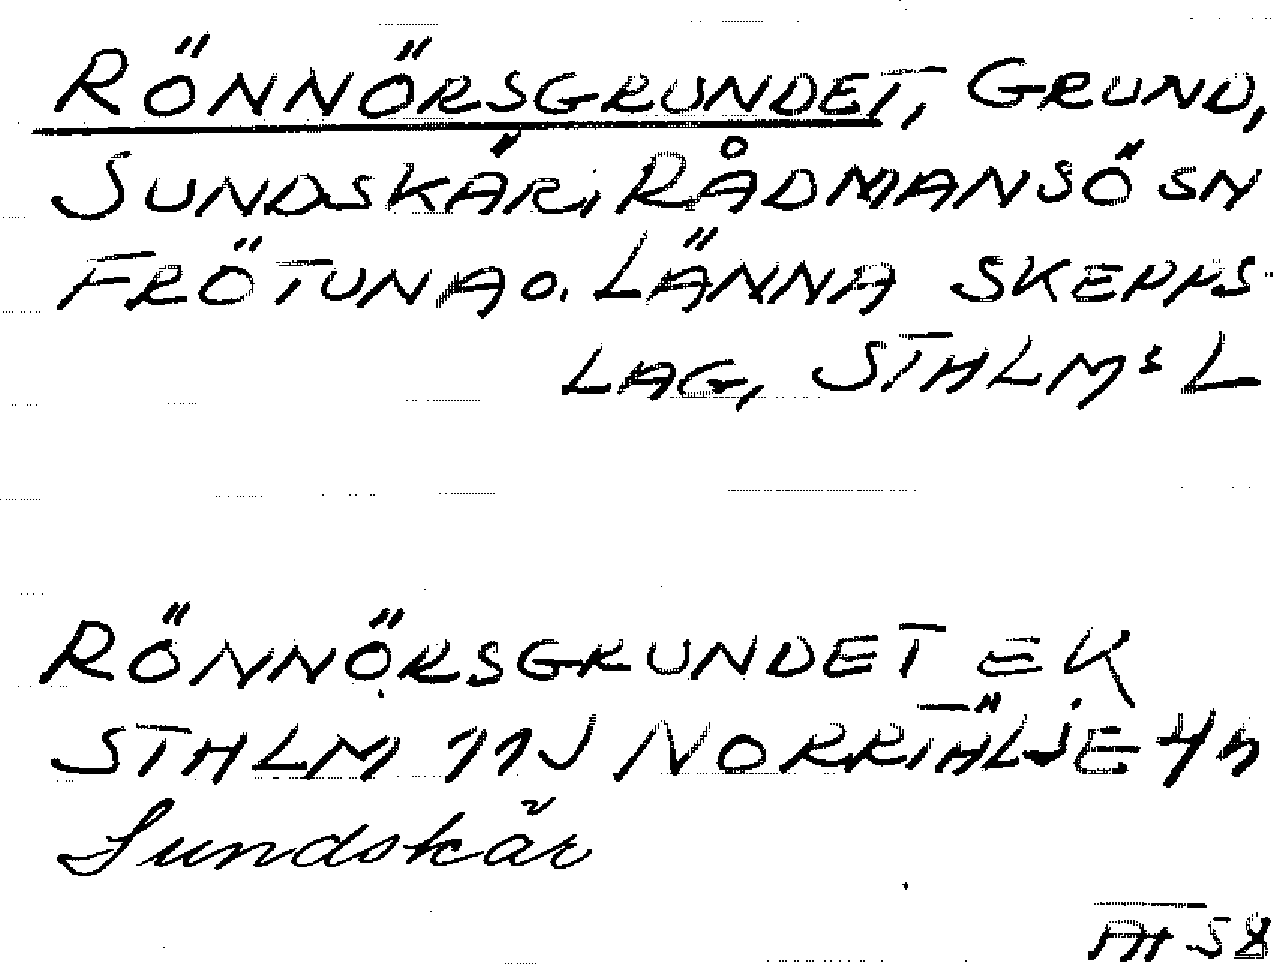 RÖNNÖRSGRUNDET, GRUND,
SUNDSKÄR, RÅDMANSÖ SN
FRÖTUNA O. LÄNNA SKEPPS-
LAG, STHLMS L
RÖNNÖRSGRUNDET EK
STHLM 11J NORRTÄLJE 4h
Sundskär
58